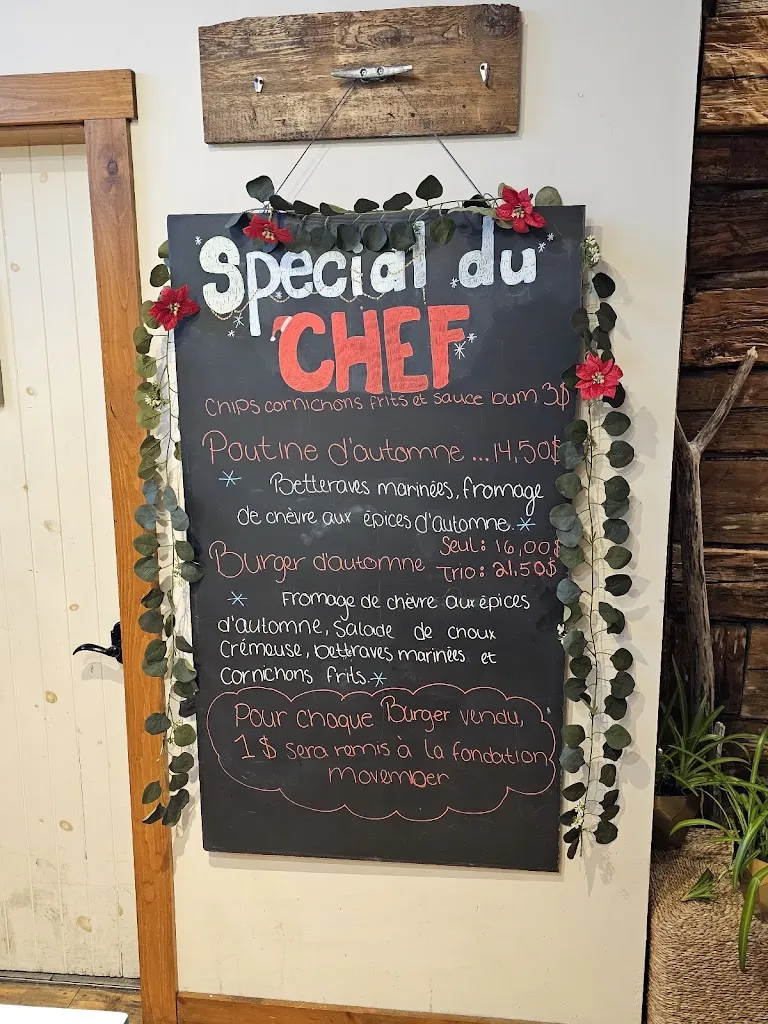 Special du
CHEF
Chips cornichons frits et sauce bum 3$
Poutine d'automne ... 14,50$
Betteraves marinées, fromage
de chèvre aux épices d'automne.
Burger d'automne Seul: 16,00$
Trio: 21,50$
Fromage de chèvre aux épices
d'automne, Salade de choux
Crémeuse, betteraves marinées et
Cornichons frits.
Pour chaque Burger vendu,
1$ sera remis à la fondation
movember